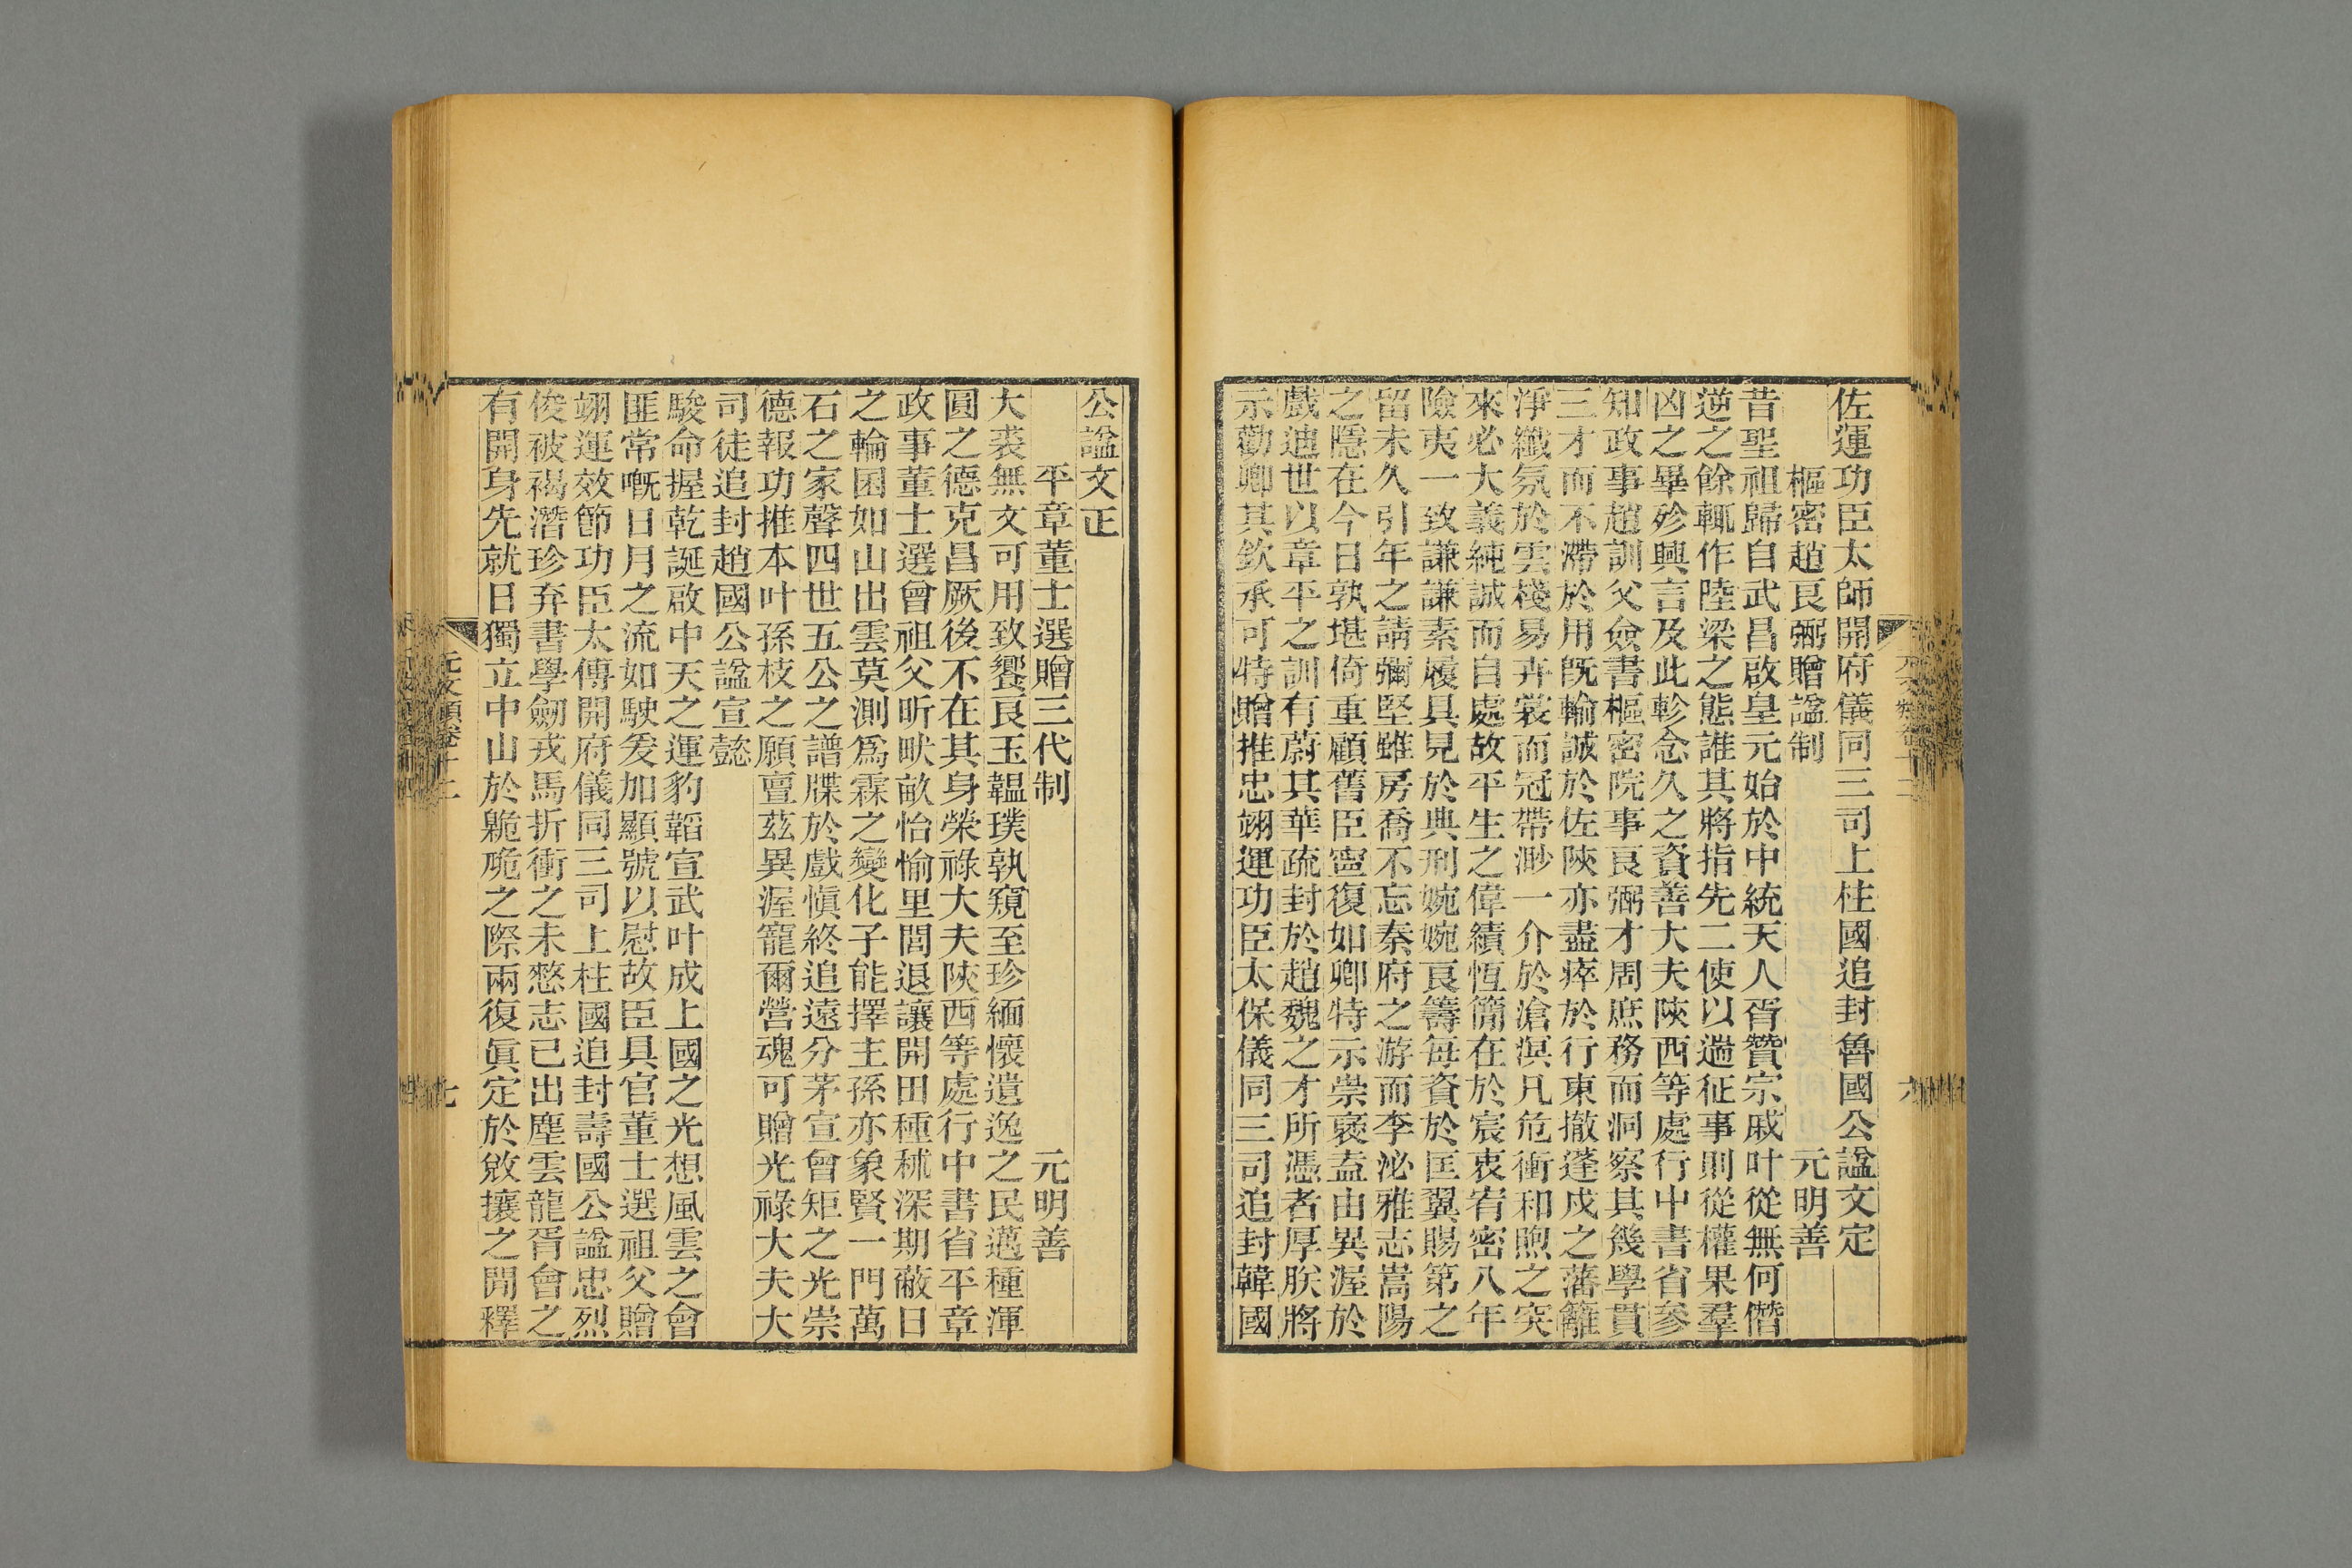 佐運功臣太師開府儀同三司上柱國追封魯國公諡文定
樞密趙良弼贈諡制 元明善
昔聖祖歸自武昌啟皇元始於中統天人胥贊宗戚叶從無何僭
逆之餘輒作陸梁之態誰其將指先二使以遄征事則從權果羣
凶之畢殄興言及此軫念久之資善大夫陝西等處行中書省參
知政事趙訓父僉書樞密院事良弼才周庶務而洞察其幾學貫
三才而不滯於用旣輸誠於佐陝亦盡瘁於行東撤蓬戍之藩籬
淨纖氛於雲棧易卉裳而冠帶渺一介於滄溟凡危衝和煦之突
來必大義純誠而自處故平生之偉績恆簡在於宸衷宥密八年
險夷一致謙謙素履具見於典刑婉婉良籌每資於匡翼賜第之
留未久引年之請彌堅雖房喬不忘秦府之游而李泌雅志嵩陽
之隱在今日孰堪倚重顧舊臣寧復如卿特示崇襃葢由異渥於
戲迪世以章平之訓有蔚其華疏封於趙魏之才所憑者厚朕將
示勸卿其欽承可特贈推忠翊運功臣太保儀同三司追封韓國
元文類卷十二 六
公諡文正
平章董士選贈三代制 元明善
大裘無文可用致饗良玉韞璞孰窺至珍緬懷遺逸之民邁種渾
圓之德克昌厥後不在其身榮祿大夫陝西等處行中書省平章
政事董士選曾祖父昕畎畝怡愉里閭退讓開田種秫深期蔽日
之輪囷如山出雲莫測爲霖之變化子能擇主孫亦象賢一門萬
石之家聲四世五公之譜牒於戲愼終追遠分茅宣曾矩之光崇
德報功推本叶孫枝之願亶茲異渥寵爾營魂可贈光祿大夫大
司徒追封趙國公諡宣懿
駿命握乾誕啟中天之運豹韜宣武叶成上國之光想風雲之會
匪常嘅日月之流如駛爰加顯號以慰故臣具官董士選祖父贈
翊運效節功臣太傅開府儀同三司上柱國追封壽國公諡忠烈
俊被褐潛珍弃書學劒戎馬折衝之未憗志已出塵雲龍胥會之
有開身先就日獨立中山於臲卼之際兩復眞定於敓攘之閒釋
元文類卷十二 七